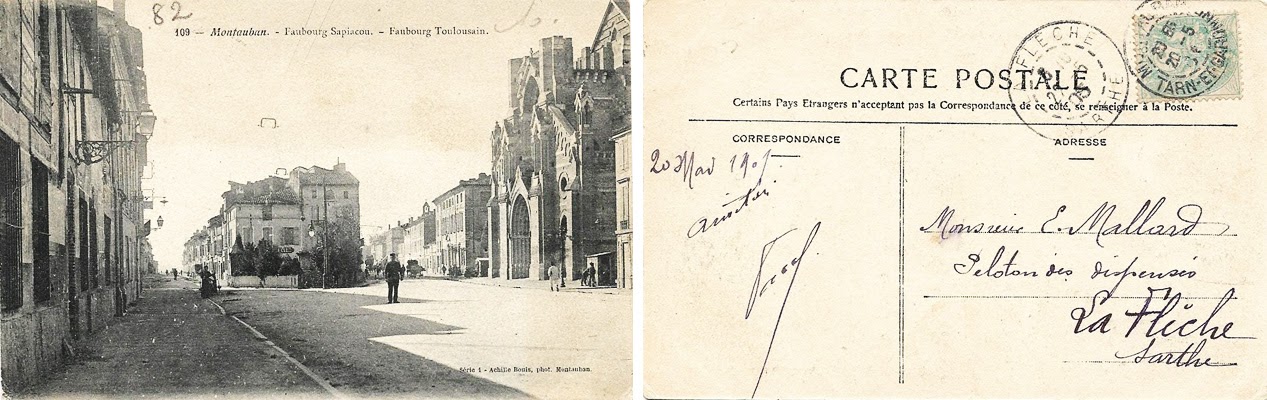 82
109 — Montauban. - Faubourg Sapiacou. - Faubourg Toulousain.
Série 1 - Achille Bouis, phot. Montauban.
CARTE POSTALE
Certains Pays Etrangers n'acceptant pas la Correspondance de ce côté, se renseigner à la Poste.
LA FLÈCHE
SARTHE
MONTAUBAN
TARN-ET-GARONNE
CORRESPONDANCE
20 Mai 1905
ADRESSE
Monsieur E. Mallard
Peloton des dispensés
La Flèche
Sarthe